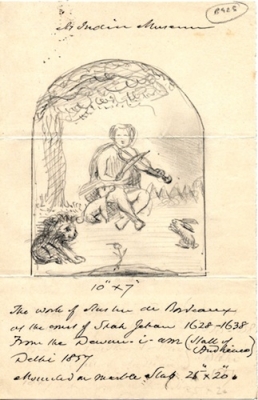 Indian Museum
10" x 7"
The work of Austin de Bordeaux
at the court of Shah Jehan 1628-1638
From the Dewan-i-am (Hall of
Audience)
Delhi 1857
Mounted on marble Slab 25" x 20"